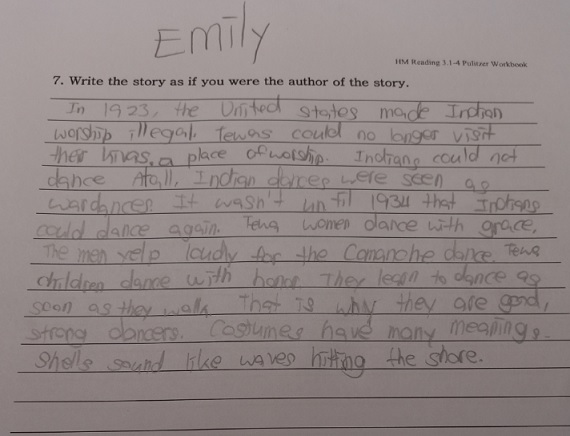 Emily
HM Reading 3.1-4 Pulitzer Workbook
7. Write the story as if you were the author of the story.
In 1923, the United states made Indian
worship illegal. Tewas could no longer visit
their kivas, a place of worship. Indians could not
dance Atall. Indian dances were seen as
wardances. It wasn't until 1934 that Indians
could dance again. Tewa women dance with grace.
The men yelp loudly for the Comanche dance. Tewa
children dance with honor. They learn to dance as
soon as they walk. That is why they are good,
strong dancers. Costumes have many meanings.
Shells sound like waves hitting the shore.